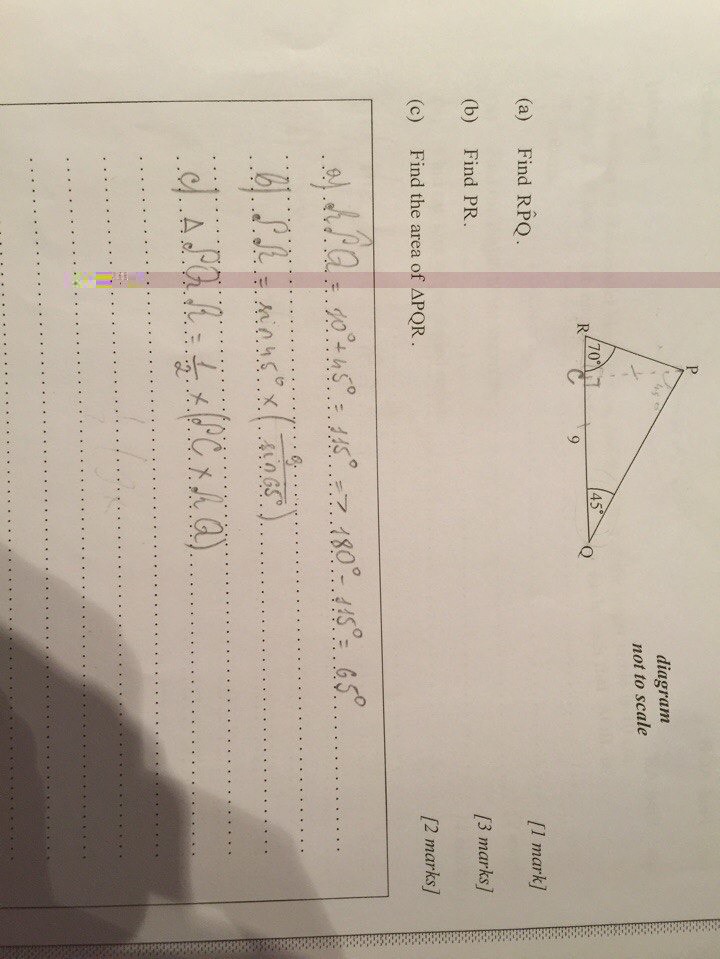 P
R
70°
C
9
45°
Q
diagram
not to scale
(a) Find RP̂Q. [1 mark]
(b) Find PR. [3 marks]
(c) Find the area of ΔPQR. [2 marks]
a) RP̂Q = 70° + 45° = 115° => 180° - 115° = 65°
b) PR = sin45° × (9/sin65°)
c) Δ PQR = 1/2 × (PC × RQ)